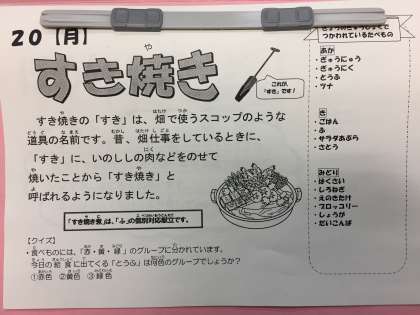 20【月】
すき焼き
これが、
「すき」です！
すき焼きの「すき」は、畑で使うスコップのような
道具の名前です。昔、畑仕事をしているときに、
「すき」に、いのししの肉などをのせて
焼いたことから「すき焼き」と
呼ばれるようになりました。
「すき焼き煮」は、「ふ」の個別対応献立です。
【クイズ】
・食べものには、「赤・黄・緑」のグループに分かれています。
今日の給食に出てくる「とうふ」は何色のグループでしょうか？
①赤色 ②黄色 ③緑色
つかわれているたべもの
あか
・ぎゅうにゅう
・ぎゅうにく
・とうふ
・ツナ
き
・ごはん
・ふ
・サラダあぶら
・さとう
みどり
・はくさい
・しろねぎ
・えのきたけ
・ブロッコリー
・しょうが
・だいこんば